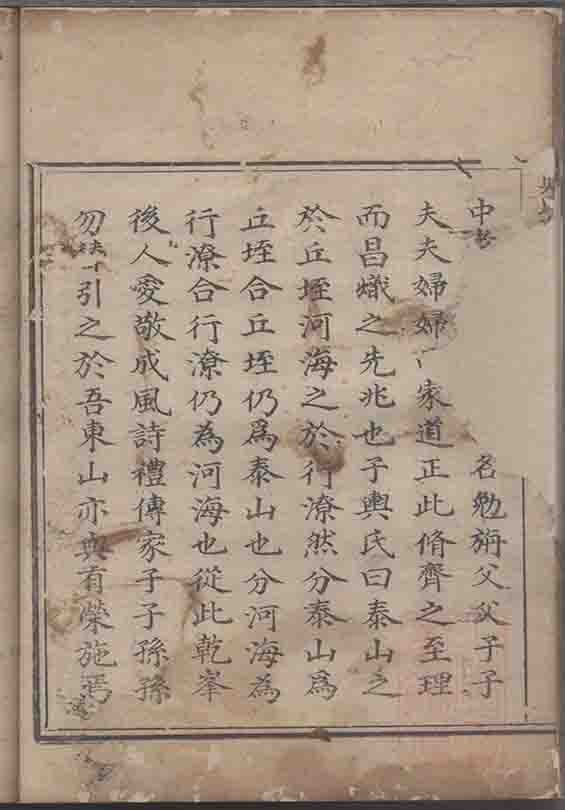 中 名勉旃父父子子
夫夫婦婦 家道正此脩齊之至理
而昌熾之先兆也子輿氏曰泰山之
於丘垤河海之於行潦然分泰山為
丘垤合丘垤仍爲泰山也分河海為
行潦合行潦仍為河海也從此乾峯
後人愛敬成風詩禮傳家子子孫孫
勿 引之於吾東山亦與有榮施焉